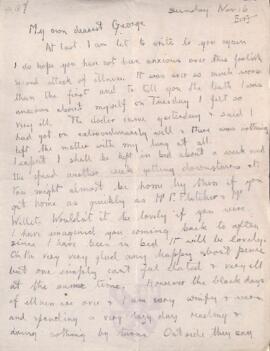 Sunday Nov 16
My own dearest George
At last I am let to write to you again
I do hope you have not been anxious over this foolish
second attack of illness. It was ever so much worse
than the first and to tell you the truth I was
anxious about myself on Tuesday I felt so
very ill. The doctor came yesterday & said I
had got on extraordinarily well & there was nothing
left the matter with my lung at all.
I expect I shall be kept in bed about a week and
then spend another week getting downstairs etc
You might almost be home by then if you
got home as quickly as Mr P. Fletcher &
Wouldn't it be lovely if you were.
I have imagined you coming back to often
since I have been in bed It will be lovely.
Oh I'm very very glad and happy about
but one simply can't feel elated & very ill
at the same time. However the black days
of illness are over & I am very and
and spending a very lazy day reading &
doing nothing by turns. Outside they say